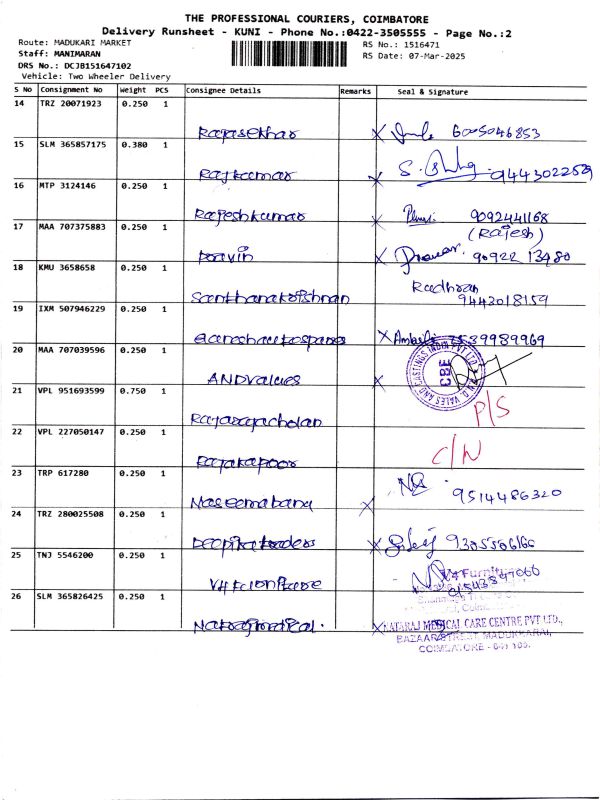 THE PROFESSIONAL COURIERS, COIMBATORE
Delivery Runsheet - KUNI - Phone No.:0422-3505555 - Page No.:2
Route: MADUKARI MARKET
Staff: MANIMARAN
DRS No.: DCJB151647102
Vehicle: Two Wheeler Delivery
RS No.: 1516471
RS Date: 07-Mar-2025
S No Consignment No Weight PCS Consignee Details Remarks Seal & Signature
14 TRZ 20071923 0.250 1
Rajasekhar 6005046853
15 SLM 365857175 0.380 1
Rajkumar 9443022529
16 MTP 3124146 0.250 1
Rajeshkumar 9092441168
(Rajesh)
17 MAA 707375883 0.250 1
Pravin 90922 13480
18 KMU 3658658 0.250 1
Santhanakrishnan 9443018159
19 IXM 507946229 0.250 1
7539989969
20 MAA 707039596 0.250 1
ANDvalues
CBE
21 VPL 951693599 0.750 1
Rajarajacholan P/S
22 VPL 227050147 0.250 1
Rajakapoor C/N
23 TRP 617280 0.250 1
Naseemabanu 9514486320
24 TRZ 280025508 0.250 1
Deepika traders
25 TNJ 5546200 0.250 1
V4 Furniture
26 SLM 365826425 0.250 1
NATARAJ MEDICAL CARE CENTRE PVT LTD.,
BAZAAR STREET, MADUKKARAI,
COIMBATORE - 641 105.